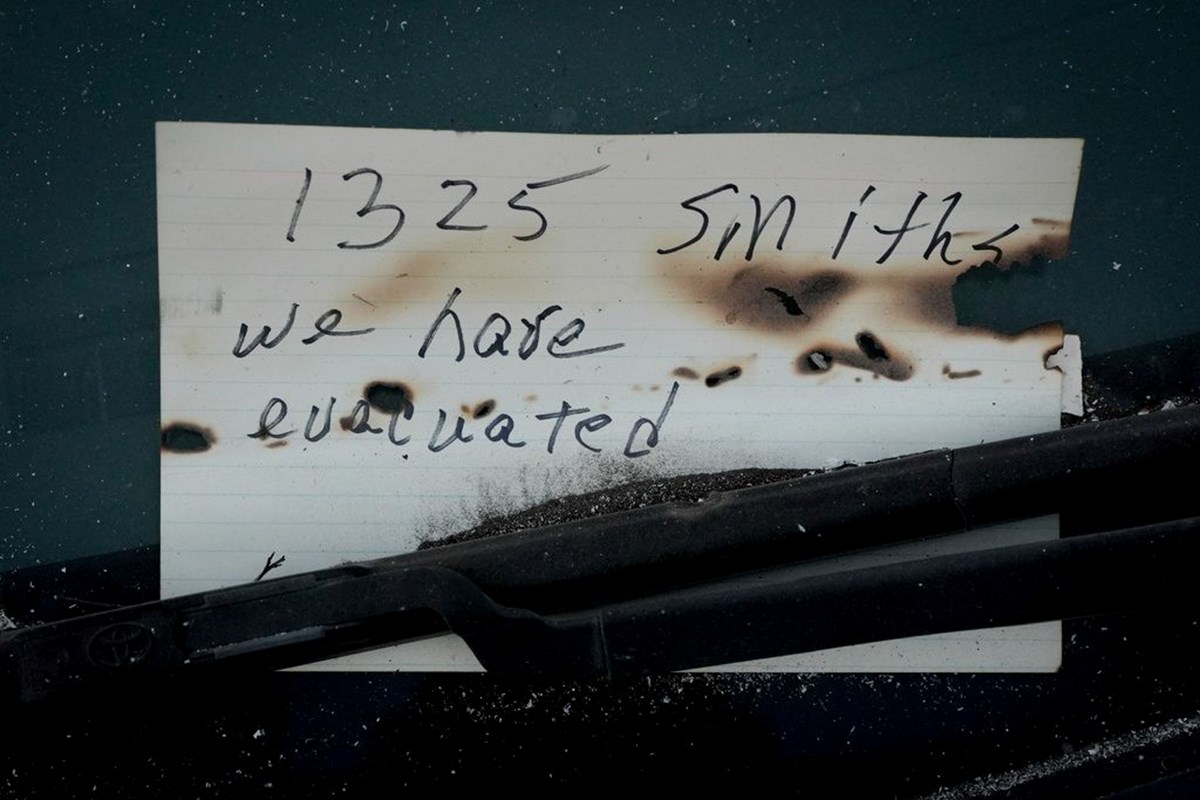 1325 Smiths
we have
evacuated